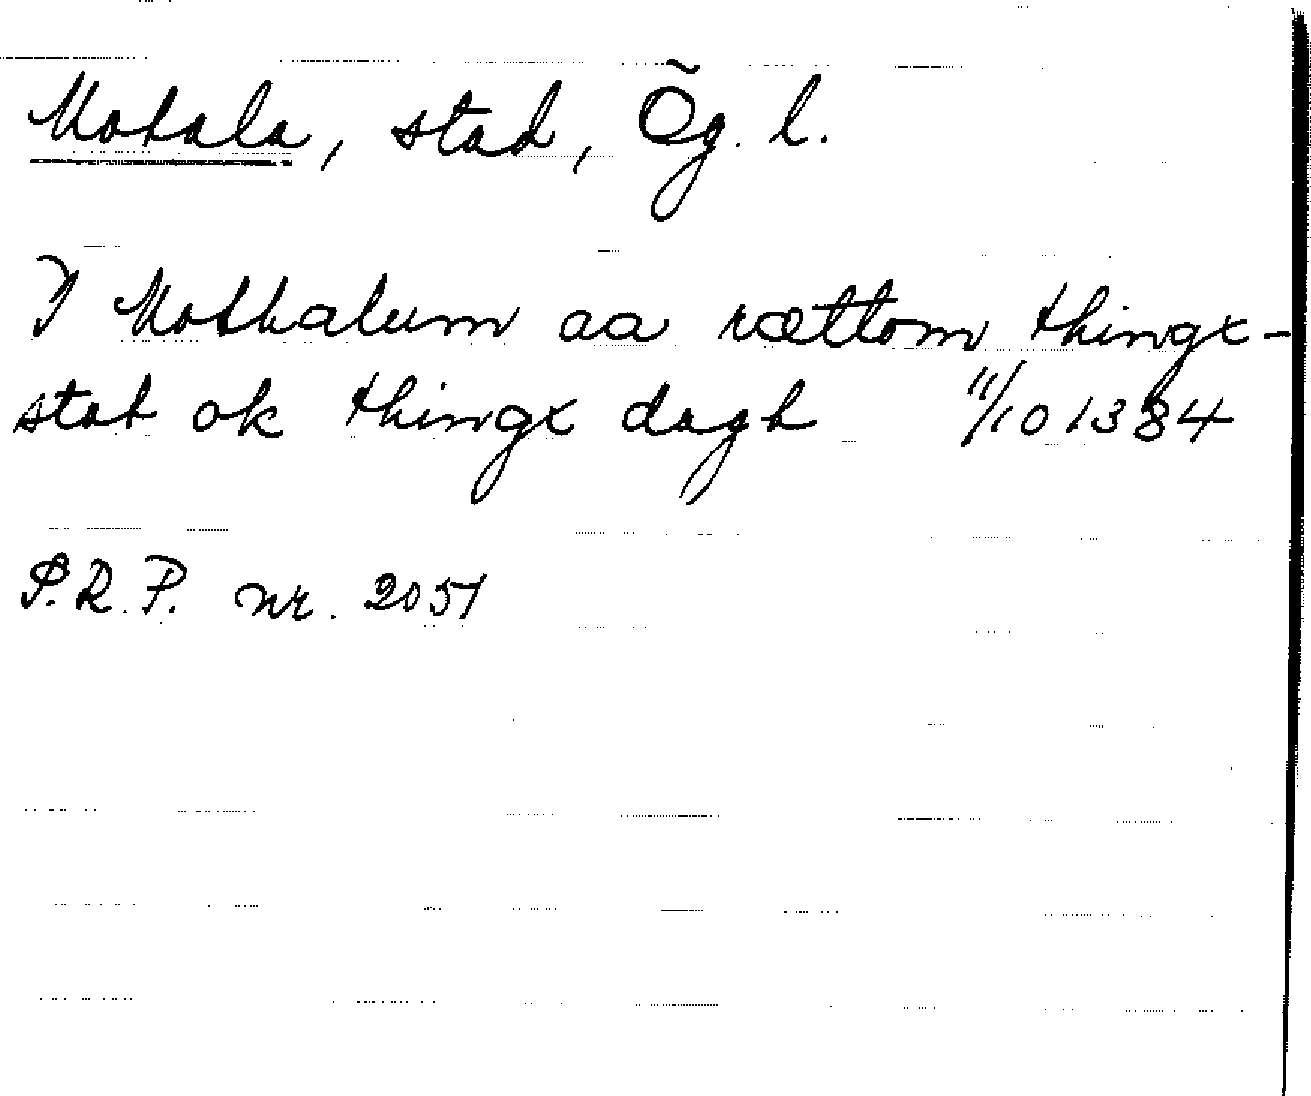 Motala, stad, Ög. l.
I Mothalum aa rættom thingx-
stat ok thingx dagh 11/10 1384
S.R.P. nr. 2051